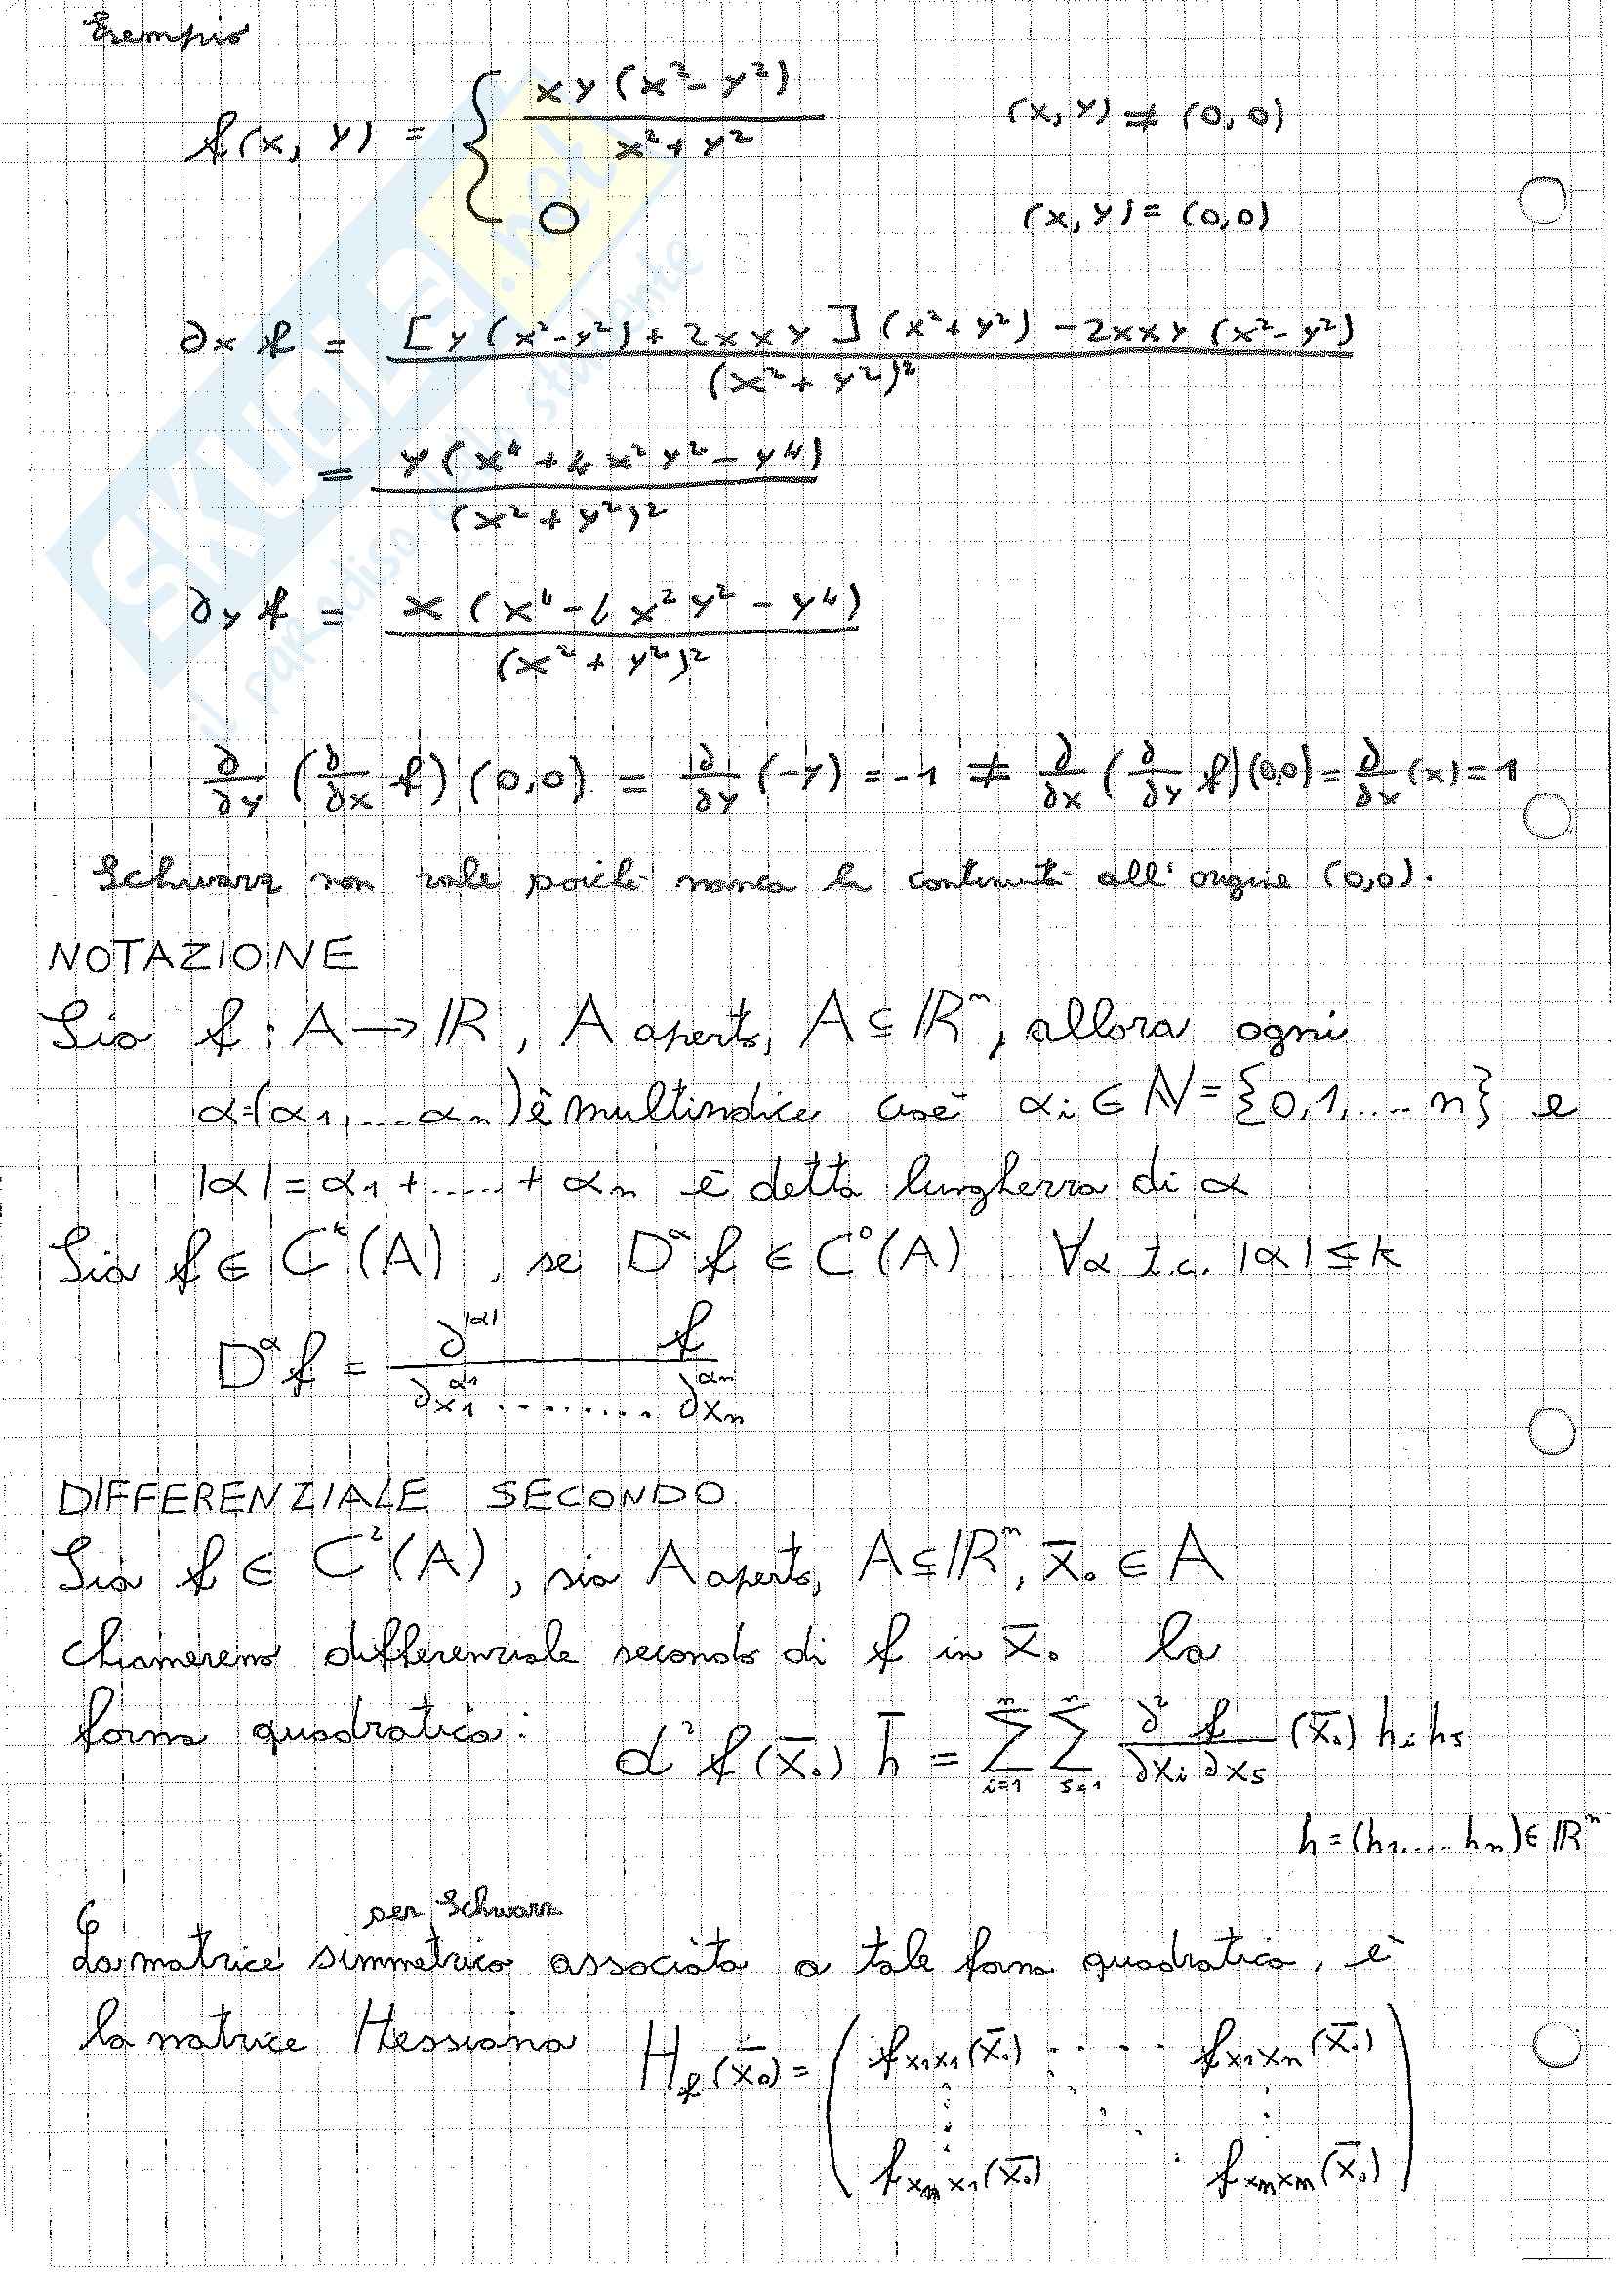 Esempio
f(x, y) = { xy(x²-y²) / x²+y²   (x,y) ≠ (0,0)
0   (x,y) = (0,0)
∂x f = [y(x²-y²) + 2xxy](x²+y²) - 2xxy(x²-y²) / (x²+y²)²
= y(x⁴+4x²y²-y⁴) / (x²+y²)²
∂y f = x(x⁴-4x²y²-y⁴) / (x²+y²)²
∂/∂y (∂/∂x f)(0,0) = ∂/∂y (-y) = -1 ≠ ∂/∂x (∂/∂y f)(0,0) = ∂/∂x (x) = 1
Schwarz non vale poichè manca la continuità all'origine (0,0).
NOTAZIONE
Sia f : A → ℝ, A aperto, A ⊆ ℝⁿ, allora ogni
α=(α₁,...αₙ) è multindice cioè αᵢ ∈ ℕ = {0,1,....n} e
|α| = α₁+.....+αₙ è detta lunghezza di α
Sia f ∈ Cᵏ(A), se Dᵅf ∈ C⁰(A) ∀α t.c. |α| ≤ k
Dᵅf = ∂^|α| f / ∂x₁^α₁ ......... ∂xₙ^αₙ
DIFFERENZIALE SECONDO
Sia f ∈ C²(A), sia A aperto, A ⊆ ℝⁿ, x̄₀ ∈ A
Chiameremo differenziale secondo di f in x̄₀ la
forma quadratica: d²f(x̄₀) h̄ = Σⁿᵢ₌₁ Σⁿₛ₌₁ ∂²f/∂xᵢ∂xₛ (x̄₀) hᵢhₛ
h = (h₁.....hₙ) ∈ ℝⁿ
per Schwarz
La matrice simmetrica associata a tale forma quadratica, è
la matrice Hessiana H_f(x̄₀) = ( f_x₁x₁(x̄₀) ..... f_x₁xₙ(x̄₀)
f_xₙx₁(x̄₀) . f_xₙxₙ(x̄₀) )
SKUOLA.net
il paradiso dello studente